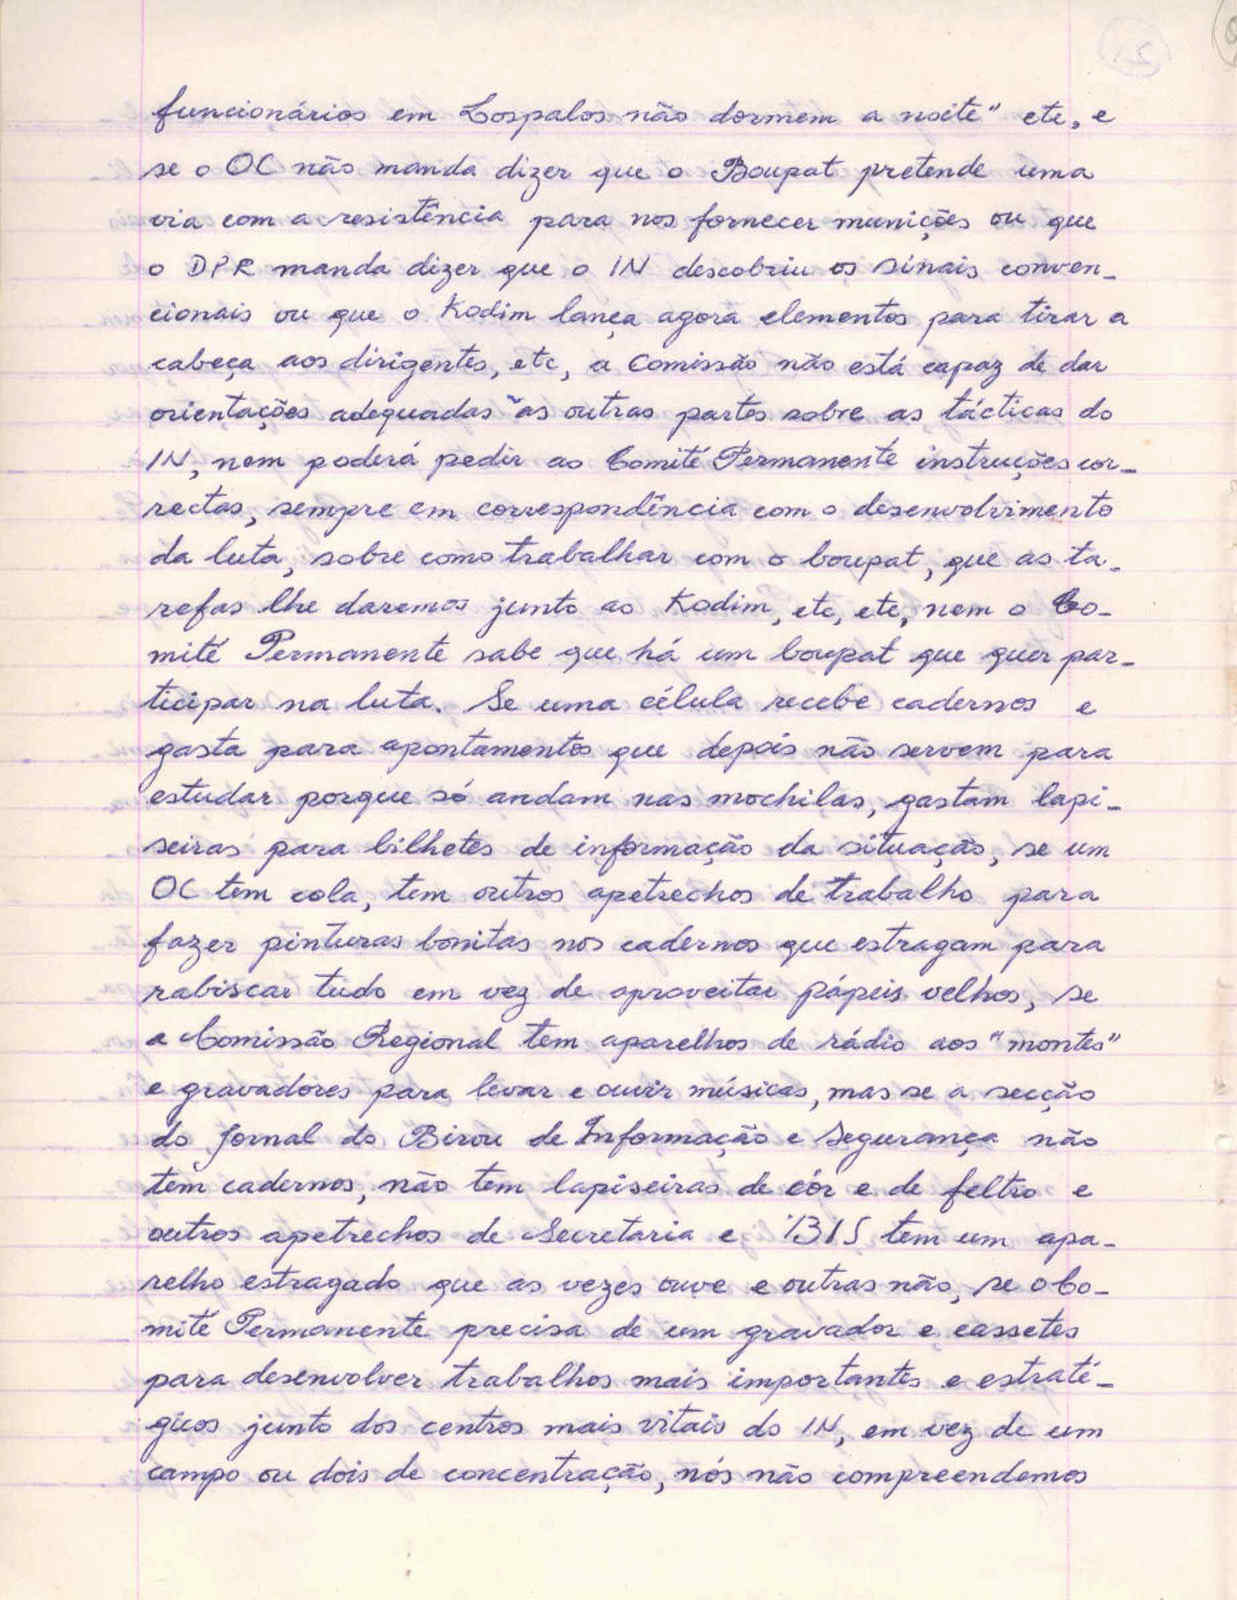 funcionários em Lospalos não dormem a noite" etc, e
se o OC não manda dizer que o Boupat pretende uma
via com a resistência para nos fornecer munições ou que
o DPR manda dizer que o IN descobriu os sinais conven-
cionais ou que o Kodim lança agora elementos para tirar a
cabeça aos dirigentes, etc, a Comissão não está capaz de dar
orientações adequadas às outras partes sobre as tácticas do
IN, nem poderá pedir ao Comité Permanente instruções cor-
rectas, sempre em correspondência com o desenvolvimento
da luta, sobre como trabalhar com o boupat, que as ta-
refas lhe daremos junto ao Kodim, etc, etc, nem o Co-
mité Permanente sabe que há um boupat que quer par-
ticipar na luta. Se uma célula recebe cadernos e
gasta para apontamentos que depois não servem para
estudar porque só andam nas mochilas, gastam lapi-
seiras para bilhetes de informação da situação, se um
OC tem cola, tem outros apetrechos de trabalho para
fazer pinturas bonitas nos cadernos que estragam para
rabiscar tudo em vez de aproveitar pápeis velhos, se
a Comissão Regional tem aparelhos de rádio aos "montes"
e gravadores para levar e ouvir músicas, mas se a secção
do Jornal do Birou de Informação e Segurança não
tem cadernos, não tem lapiseiras de côr e de feltro e
outros apetrechos de Secretaria e BIS tem um apa-
relho estragado que as vezes ouve e outras não, se o Co-
mité Permanente precisa de um gravador e cassetes
para desenvolver trabalhos mais importantes e estraté-
gicos junto dos centros mais vitais do IN, em vez de um
campo ou dois de concentração, nós não compreendemos